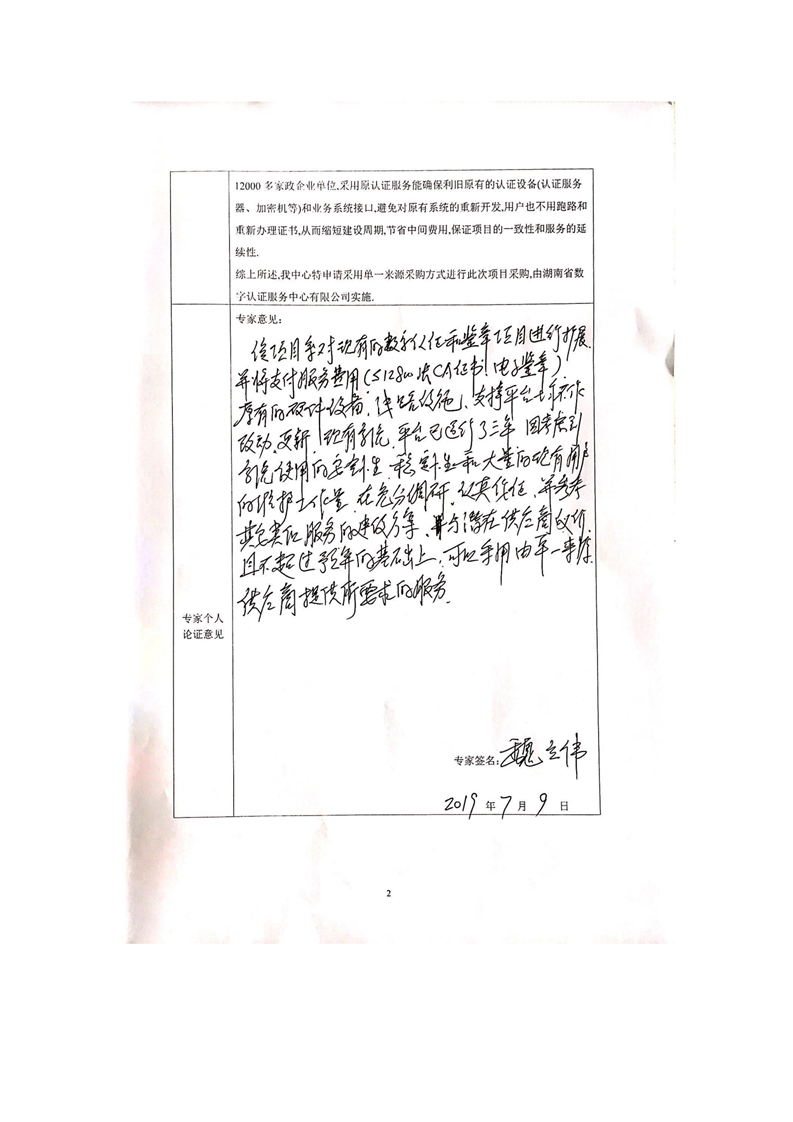 12000 多家政企业单位,采用原认证服务能确保利旧原有的认证设备(认证服务
器、加密机等)和业务系统接口,避免对原有系统的重新开发,用户也不用跑路和
重新办理证书,从而缩短建设周期,节省中间费用,保证项目的一致性和服务的延
续性.
综上所述,我中心特申请采用单一来源采购方式进行此次项目采购,由湖南省数
字认证服务中心有限公司实施.
专家个人
论证意见
专家意见：
该项目系对现有的数字认证和鉴章项目进行扩展
并将支付服务费用（ CA证书、电子鉴章）
原有的硬件设备、线路设施、支持平台均不作
改动、更新，现有系统、平台已运行了三年，因考虑到
系统使用的 性、稳定性和大量的现有用户
的维护工作量，在充分调研、认真论证、并参考
其它类似服务的建设方案，并与潜在供应商 价
且不超过预算的基础上，可以采用由单一来源
供应商提供所要求的服务.
专家签名：魏立伟
2019 年 7 月 9 日
2